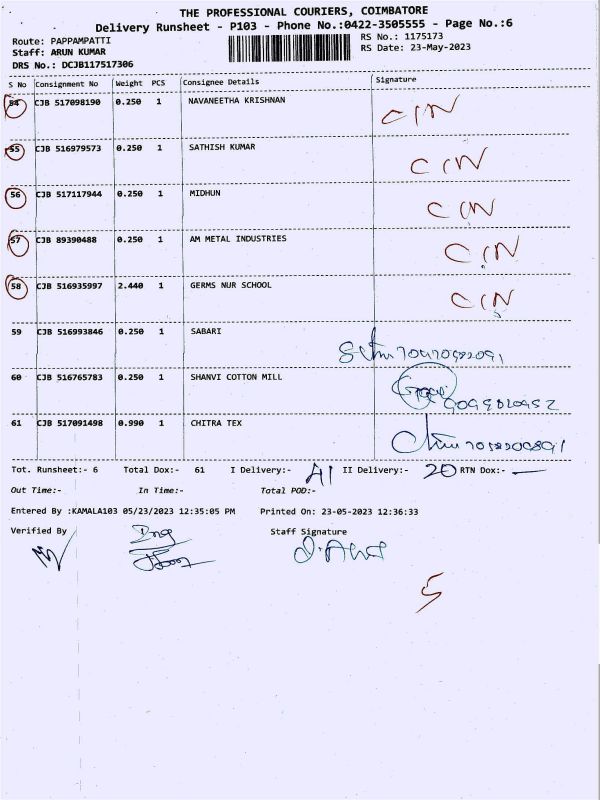 THE PROFESSIONAL COURIERS, COIMBATORE
Delivery Runsheet - P103 - Phone No.:0422-3505555 - Page No.:6
Route: PAPPAMPATTI
RS No.: 1175173
Staff: ARUN KUMAR
RS Date: 23-May-2023
DRS No.: DCJB117517306
S No Consignment No Weight PCS Consignee Details Signature
54 CJB 517098190 0.250 1 NAVANEETHA KRISHNAN CIN
55 CJB 516979573 0.250 1 SATHISH KUMAR CIN
56 CJB 517117944 0.250 1 MIDHUN CIN
57 CJB 89390488 0.250 1 AM METAL INDUSTRIES CIN
58 CJB 516935997 2.440 1 GERMS NUR SCHOOL CIN
59 CJB 516993846 0.250 1 SABARI
60 CJB 516765783 0.250 1 SHANVI COTTON MILL
61 CJB 517091498 0.990 1 CHITRA TEX
Tot. Runsheet:- 6 Total Dox:- 61 I Delivery:- 41 II Delivery:- 20 RTN Dox:- —
Out Time:- In Time:- Total POD:-
Entered By :KAMALA103 05/23/2023 12:35:05 PM Printed On: 23-05-2023 12:36:33
Verified By Staff Signature
5